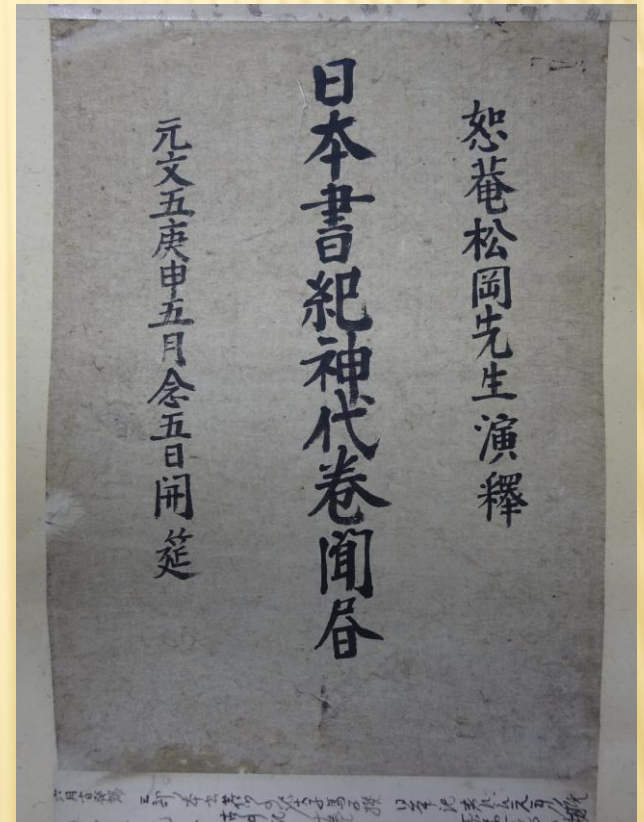 恕菴松岡先生演釋
日本書紀神代卷聞書
元文五庚申五月念五日開筵